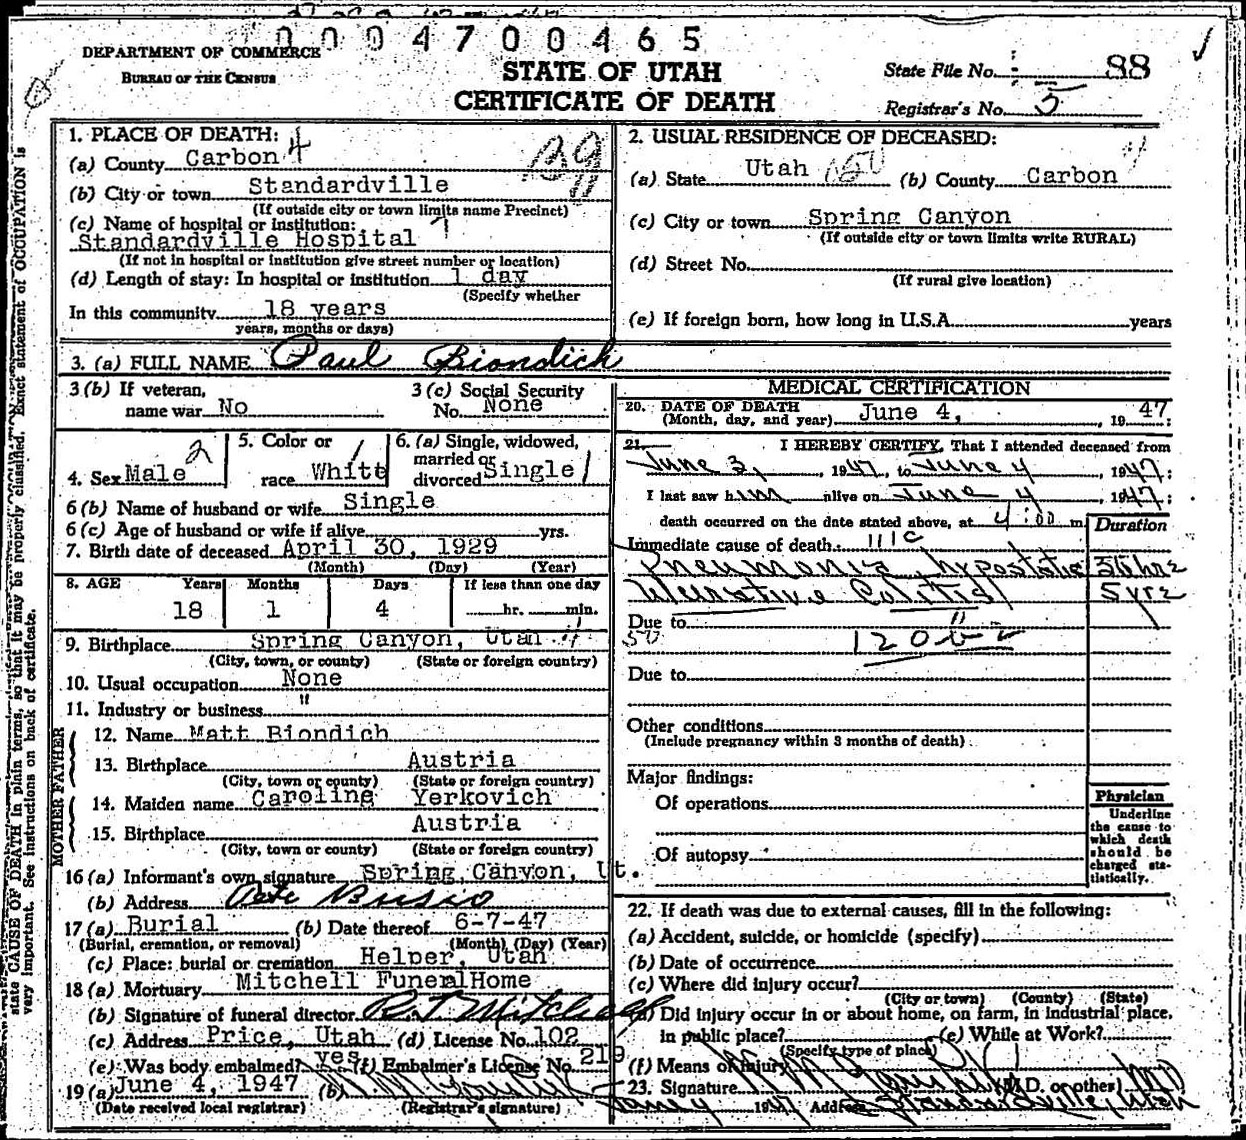 0004700465
DEPARTMENT OF COMMERCE
BUREAU OF THE CENSUS
STATE OF UTAH
CERTIFICATE OF DEATH
State File No. 88
Registrar's No. 5
1. PLACE OF DEATH: 4
(a) County Carbon
(b) City or town Standardville
(If outside city or town limits name Precinct)
(c) Name of hospital or institution:
Standardville Hospital
(If not in hospital or institution give street number or location)
(d) Length of stay: In hospital or institution 1 day
(Specify whether
In this community 18 years
years, months or days)
2. USUAL RESIDENCE OF DECEASED:
(a) State Utah (b) County Carbon
(c) City or town Spring Canyon
(If outside city or town limits write RURAL)
(d) Street No.
(If rural give location)
(e) If foreign born, how long in U.S.A. years
3. (a) FULL NAME Paul Biondich
3 (b) If veteran,
name war No
3 (c) Social Security
No. None
4. Sex Male 2
5. Color or
race White
6. (a) Single, widowed,
married or
divorced Single
6 (b) Name of husband or wife Single
6 (c) Age of husband or wife if alive yrs.
7. Birth date of deceased April 30, 1929
(Month) (Day) (Year)
8. AGE Years Months Days If less than one day
18 1 4 hr. min.
9. Birthplace Spring Canyon, Utah
(City, town, or county) (State or foreign country)
10. Usual occupation None
11. Industry or business "
FATHER
12. Name Matt Biondich
13. Birthplace Austria
(City, town or county) (State or foreign country)
MOTHER
14. Maiden name Caroline Yerkovich
15. Birthplace Austria
(City, town or county) (State or foreign country)
16 (a) Informant's own signature Spring Canyon, Ut.
(b) Address Pete Busio
17 (a) Burial (b) Date thereof 6-7-47
(Burial, cremation, or removal) (Month) (Day) (Year)
(c) Place: burial or cremation Helper, Utah
18 (a) Mortuary Mitchell Funeral Home
(b) Signature of funeral director R. T. Mitchell
(c) Address Price, Utah (d) License No. 102
(e) Was body embalmed? yes (f) Embalmer's License No. 219
19 (a) June 4, 1947 (b)
(Date received local registrar) (Registrar's signature)
MEDICAL CERTIFICATION
20. DATE OF DEATH
(Month, day, and year) June 4, 1947;
21. I HEREBY CERTIFY, That I attended deceased from
June 3, 1947, to June 4, 1947;
I last saw him alive on June 4, 1947;
death occurred on the date stated above, at 4:00 m
Duration
Immediate cause of death: 111c
Pneumonia, hypostatic 36 hrs
Ulcerative Colitis 5 yrs
Due to
120b
Due to
Other conditions
(Include pregnancy within 3 months of death)
Major findings:
Of operations
Of autopsy
Physician
Underline
the cause to
which death
should be
charged sta-
tistically.
22. If death was due to external causes, fill in the following:
(a) Accident, suicide, or homicide (specify)
(b) Date of occurrence
(c) Where did injury occur?
(City or town) (County) (State)
(d) Did injury occur in or about home, on farm, in industrial place,
in public place? (e) While at Work?
(Specify type of place)
(f) Means of Injury
23. Signature (M.D. or other) MD
1947 Address Standardville, Utah
state CAUSE OF DEATH in plain terms, so that it may be properly classified. Exact statement of OCCUPATION is
very important. See instructions on back of certificate.